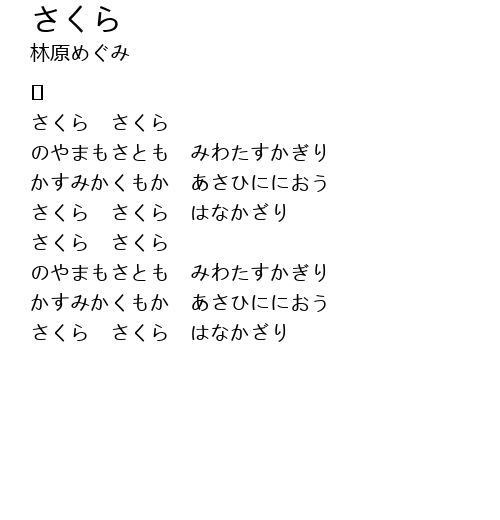 さくら
林原めぐみ
さくら　さくら
のやまもさとも　みわたすかぎり
かすみかくもか　あさひににおう
さくら　さくら　はなかざり
さくら　さくら
のやまもさとも　みわたすかぎり
かすみかくもか　あさひににおう
さくら　さくら　はなかざり